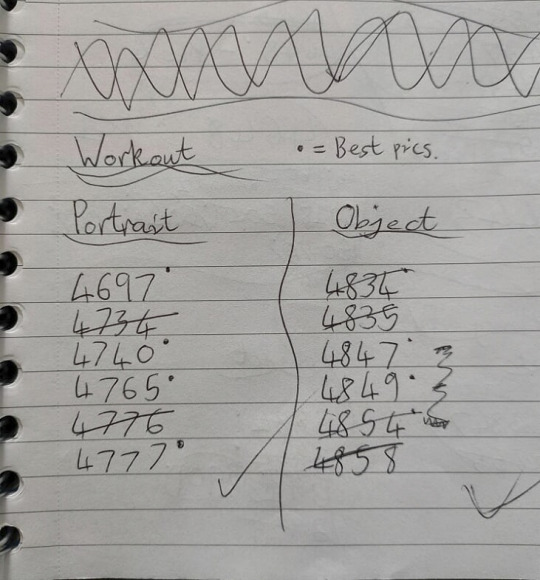 Workout • = Best pics.
Portrait Object
4697• 4834•
4734 4835
4740• 4847•
4765• 4849•
4776 4854•
4777• 4858